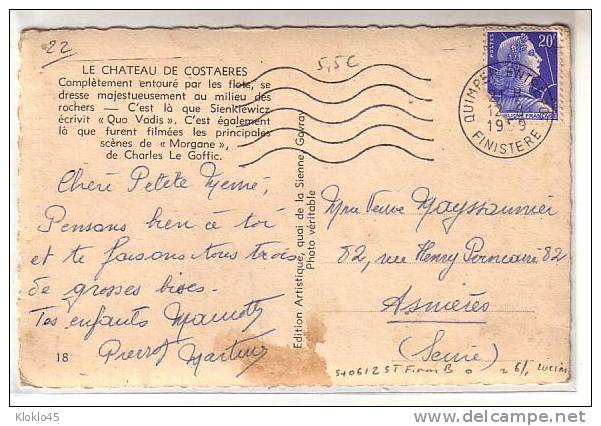 22
5,5€
LE CHATEAU DE COSTAERES
Complètement entouré par les flots, se
dresse majestueusement au milieu des
rochers — C'est là que Sienkiewicz
écrivit « Quo Vadis ». C'est également
là que furent filmées les principales
scènes de « Morgane »,
de Charles Le Goffic.
POSTES
20F
QUIMPER
12
1959
FINISTERE
Chère Petite Mémé,
Pensons bien à toi
et te faisons tous trois
de grosses bises.
Tes enfants
Pierrot
18
Edition Artistique, quai de la Sienne, Gavray
Photo véritable
Mme Veuve Mayssounier
82, rue Henry Poincaré 82
Asnières
(Seine)
Kloklo45
delcampe.net